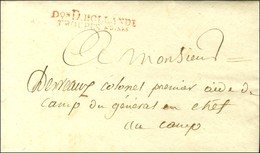 Don D. HOLLANDE
A Monsieur
Derveaux colonel premier aide de
camp du général en chef
au camp